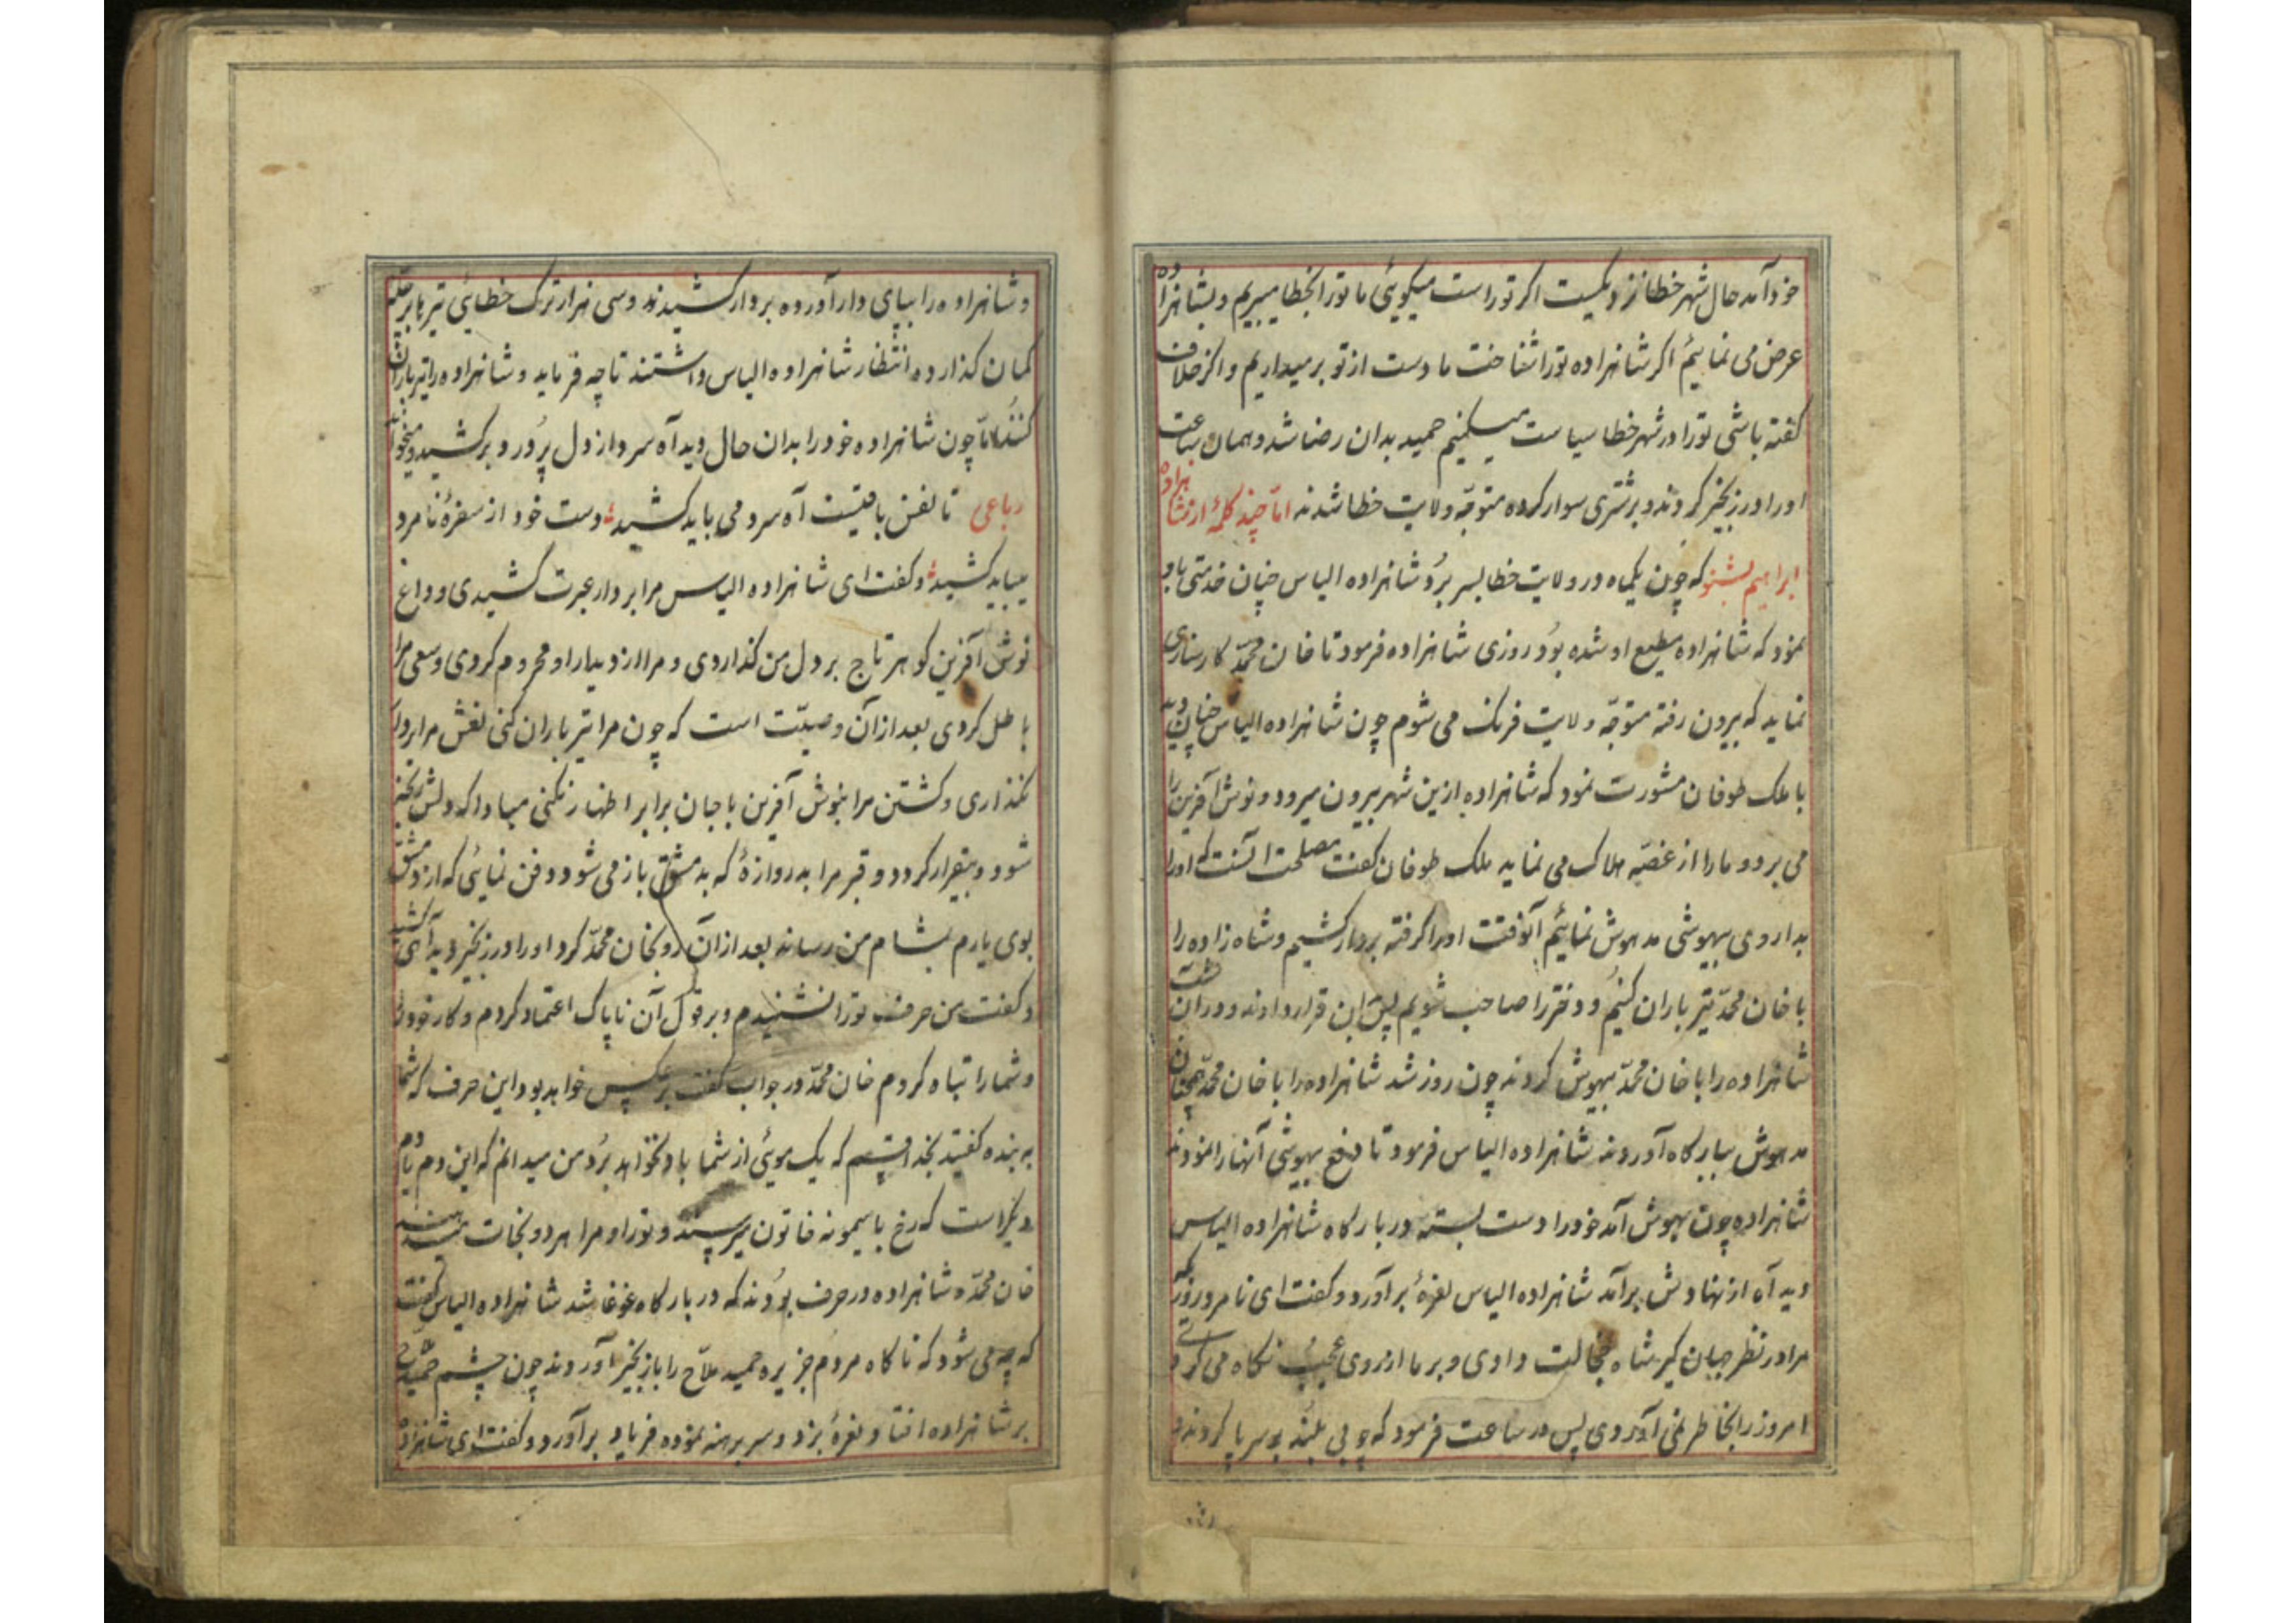 خود آمد حال شهر خطا نزدیکست اکر تو راست میکوئی ما تورا بخطا میبریم و بشاهزاده
عرض می نمائیم اکر شاهزاده تورا شناخت ما دست از تو برمیداریم و اکر خلاف
کفته باشی تورا در شهر خطا سیاست میکنیم حمید بدان رضا شد و همان ساعت
اورا در زنجیر کردند و بر شتری سوار کرده متوجّه ولایت خطا شدند امّا چند کلمهٔ از شاهزاده
ابراهیم بشنو که چون یکماه در ولایت خطا بسر برد شاهزاده الیاس چنان خدمتی باو
نمود که شاهزاده مطیع او شده بود روزی شاهزاده فرمود تا خان محمّد کارسازی
نماید که بیرون رفته متوجّه ولایت فرنک می شوم چون شاهزاده الیاس چنان دید
با ملک طوفان مشورت نمود که شاهزاده ازین شهر بیرون میرود و نوش آفرین را
می برد و مارا از غصّه هلاک می نماید ملک طوفان کفت مصلحت آنست که اورا
بداروی بیهوشی مدهوش نمائیم آنوقت اورا کرفته بردار کشیم و شاه زاده را
با خان محمّد تیر باران کنیم و دختر را صاحب شویم پس این قرار دادند و در آن شب
شاهزاده را با خان محمّد بیهوش کردند چون روز شد شاهزاده را با خان محمّد همچنان
مدهوش ببارکاه آوردند شاهزاده الیاس فرمود تا دفع بیهوشی آنها را نمودند
شاهزاده چون بهوش آمد خود را دست بسته در بارکاه شاهزاده الیاس
دید آه از نهادش برآمد شاهزاده الیاس نعرهٔ برآورد و کفت ای نامرد روزیکه
مرا در نظر جهان کیر شاه خجالت دادی و بر ما از روی عجب نکاه می کردی
امروز را بخاطر نمی آوردی پس در ساعت فرمود که چوبی بلند بر سر پا کردند و
و شاهزاده را بپای دار آورده بردار کشیدند و سی هزار ترک خطایی تیرها بر چلّه
کمان کذارده انتظار شاهزاده الیاس داشتند تا چه فرماید و شاهزاده را تیرباران
کنند امّا چون شاهزاده خود را بدان حال دید آه سرد از دل پر درد برکشید و میخواند
رباعی تا نفس باقیست آه سرد می باید کشید دست خود از سفرهٔ نامرد
میباید کشید و کفت ای شاهزاده الیاس مرا بردار عبرت کشیدی و داغ
نوش آفرین کوهر تاج بر دل من کذاردی و مرا از دیدار او محروم کردی و سعی مرا
باطل کردی بعد از آن وصیّت است که چون مرا تیر باران کنی نعش مرا بر دار
نکذاری و کشتن مرا بنوش آفرین با جان برابر اظهار نکنی مبادا که دلش رنجه
شود و بیقرار کردد و قبر مرا به دروازهٔ که بدمشق باز می شود دفن نمائی که از دمشق
بوی یارم بمشام من رساند بعد از آن رو بخان محمّد کرد اورا در زنجیر دید آهی کشید
و کفت من حرف تورا نشنیدم و بر قول آن ناپاک اعتماد کردم و کار خود را
و شما را تباه کردم خان محمّد در جواب کفت برعکس خواهد بود این حرف که شما
به بنده کفتید بخدا قسم که یک موئی از شما باد نخواهد برد من میدانم که این دم یا دم
دیکر است که رخ یا سیمونه خاتون میرسند و تورا و مرا هر دو نجات میدهند
خان محمّد و شاهزاده در حرف بودند که در بارکاه غوغا شد شاهزاده الیاس کفت
که چه می شود که ناکاه مردم جزیره حمید ملاّح را با زنجیر آوردند چون چشم حمید
بر شاهزاده افتاد نعرهٔ بزد و سر برهنه نموده فریاد برآورد و کفت ای شاهزاده